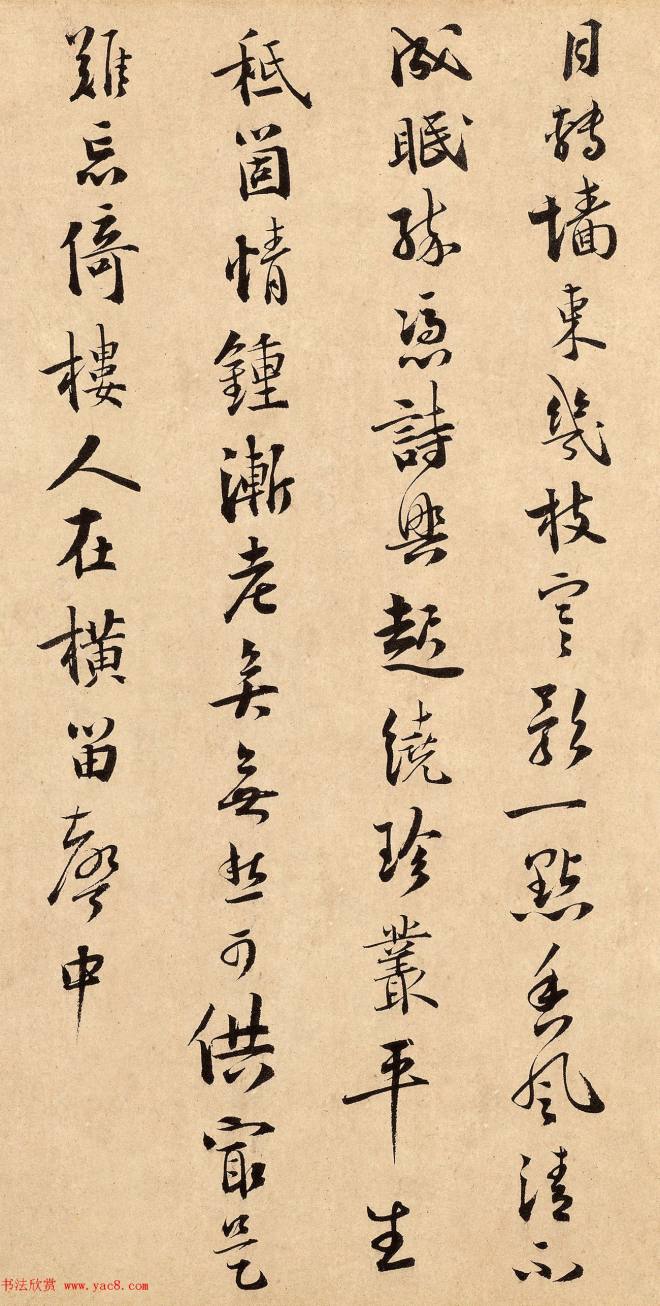 月轉墻東幾枝寒影一點香風清不
成眠醉憑詩興起繞珍叢平生
秪箇情鍾漸老矣無愁可供寂是
難忘倚樓人在橫笛聲中
书法欣赏 www.yac8.com